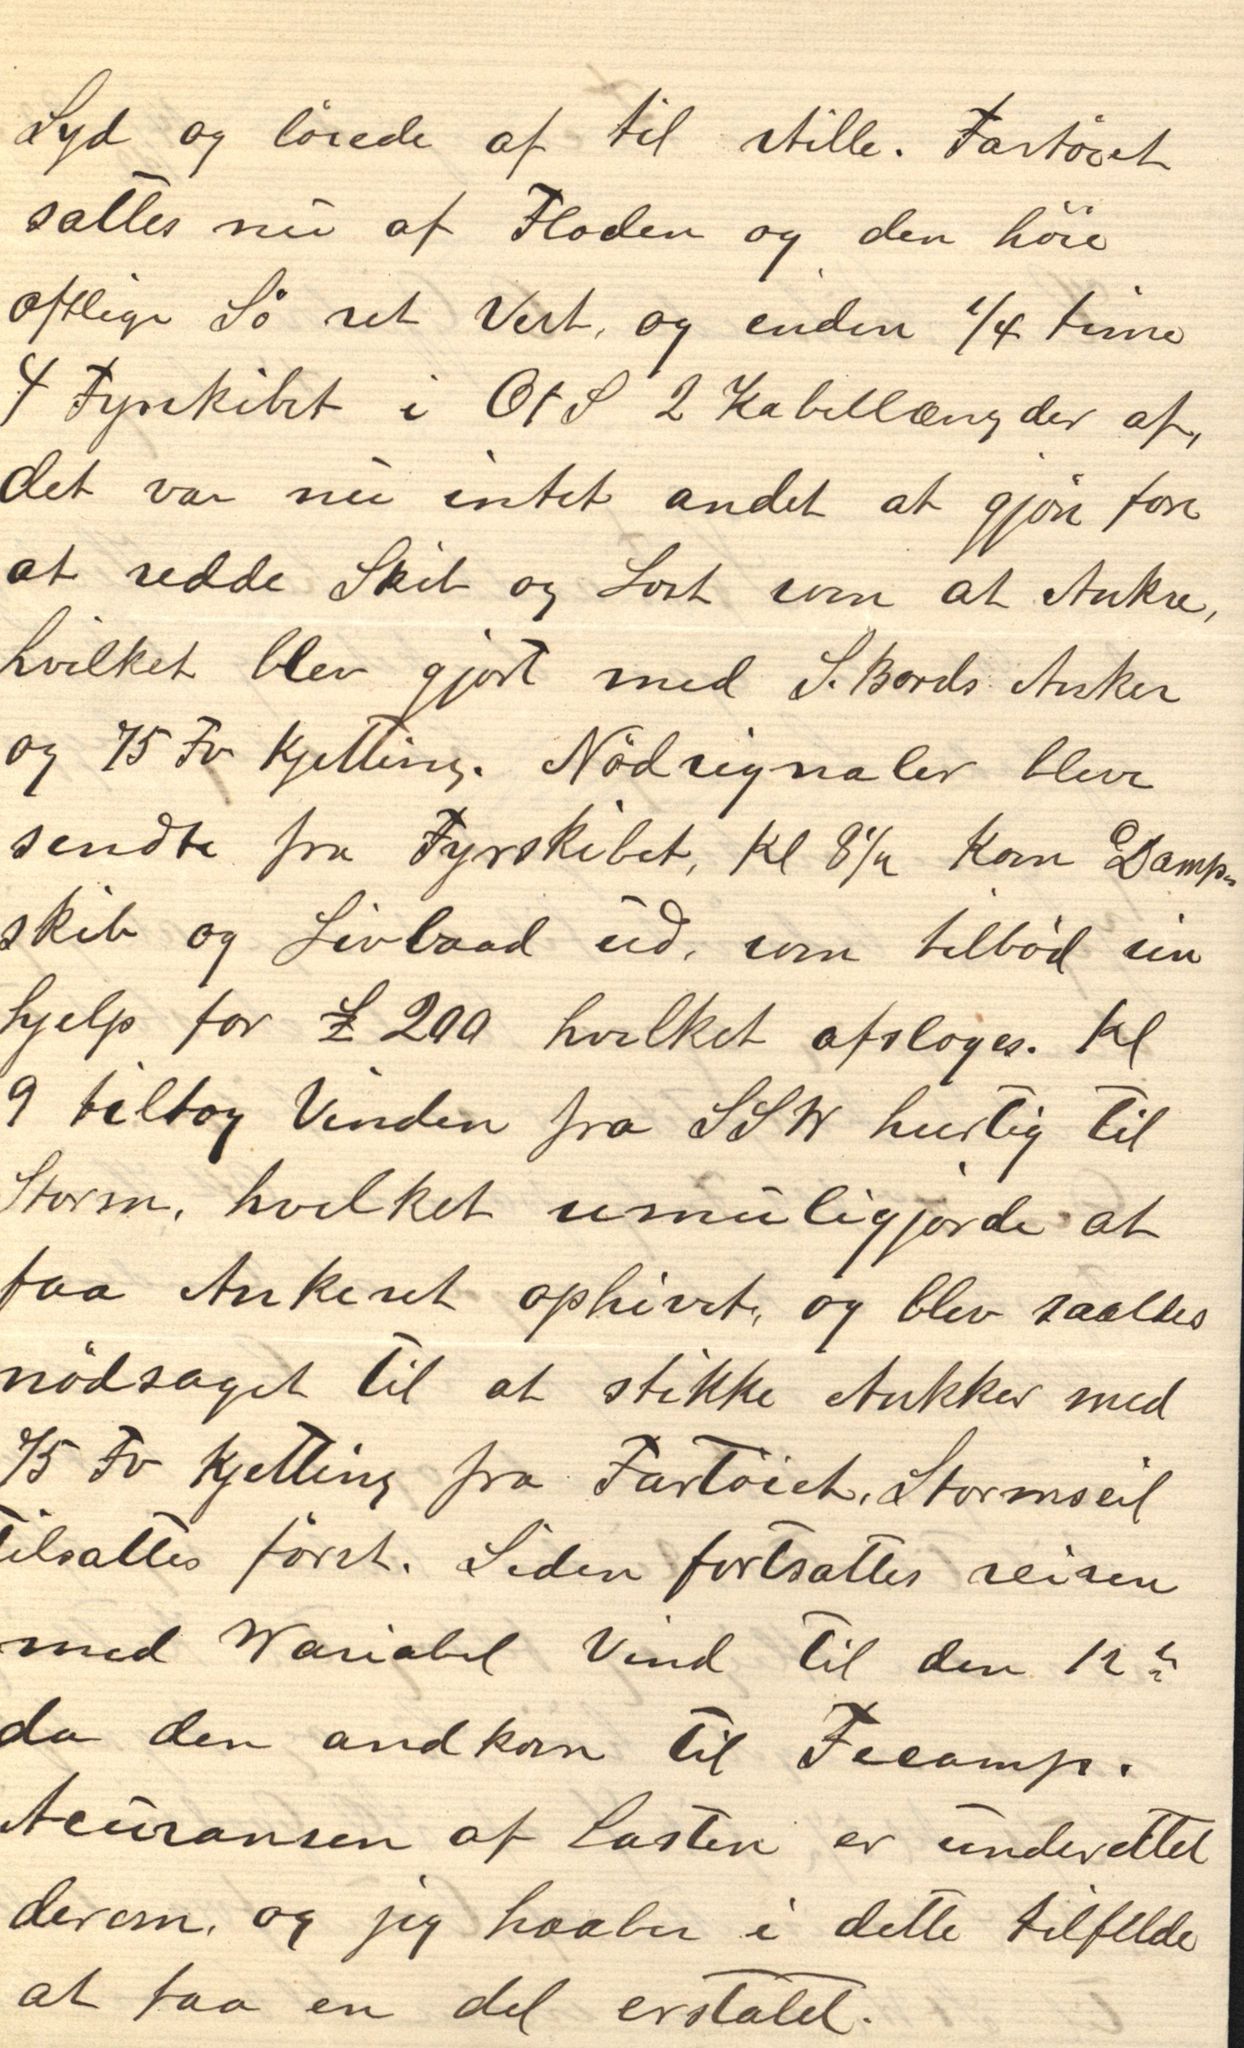 Syd og löiede af til stille. Fartöiet
sattes nu af Floden og den höie
östlige Sö ret Vest, og inden 1/4 time
4 Fyrskibet i OtS 2 Kabellængder af,
det var nu intet andet at gjöre for
at redde Skib og Last som at Ankre,
hvilket blev gjort med S. Bords Anker
og 75 Fv Kjetting. Nödsignaler bleve
sendte fra Fyrskibet, Kl 8 1/2 Kom Damp-
skib og Livbaad ud, som tilböd sin
hjelp for £ 200 hvilket afsloges. Kl
9 tiltog Vinden fra SSW hurtig til
Storm, hvilket umuligjorde at
faa Ankeret ophivet, og blev saaldes
nödsaget til at stikke Ankker med
75 Fv Kjetting fra Fartöiet, Stormseil
tilsattes först. Siden fortsattes reisen
med Wariabel Vind til den 12te
da den andkom til Fecamp.
Acuransen af Lasten er underettet
derom, og jeg haaber i dette tilfelde
at faa en del erstatet.